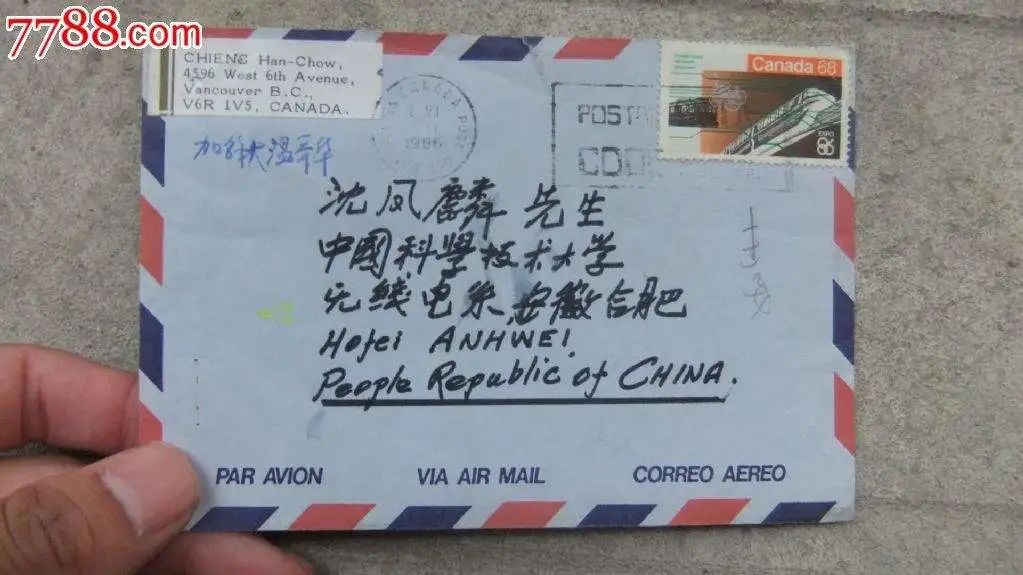 7788.com
CHIENG Han-Chow,
4596 West 6th Avenue,
Vancouver B.C.,
V6R 1V5, CANADA.
加拿大温哥华
CANADA POST
VI
1986
POST
CO
Canada 68
EXPO
86
沈凤麟 先生
中國科學技术大学
无线电系, 安徽合肥
Hofei ANHWEI.
People Republic of CHINA.
PAR AVION
VIA AIR MAIL
CORREO AEREO